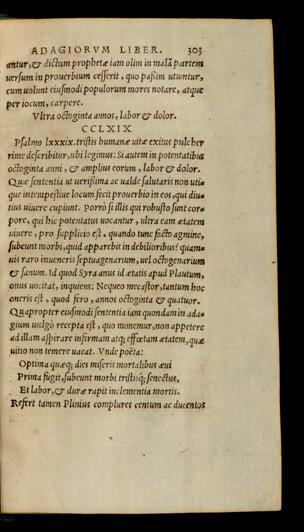 ADAGIORVM LIBER. 303
antur, & dictum prophetæ iam olim in malā partem
uersum in prouerbium cesserit, quo paßim utuntur,
cum uolunt eiusmodi populorum mores notare, atque
per iocum, carpere.
Vltra octoginta annos, labor & dolor.
CCLXIX
Psalmo lxxxix. tristis humanæ uitæ exitus pulcher
rime describitur, ubi legimus: Si autem in potentatibus
octoginta anni, & amplius eorum, labor & dolor.
Quæ sententia ut uerißima ac ualde salutaris non uti=
que intempestiue locum fecit prouerbio in eos, qui diu=
tius uiuere cupiunt. Porrò si illis qui robusto sunt cor=
pore, qui hic potentatus uocantur, ultra eam ætatem
uiuere, pro supplicio est, quando tunc sicto agmine,
subeunt morbi, quid apparebit in debilioribus? quam=
uis raro inueneris septuagenarium, uel octogenarium
& sanum. Id quod Syra anus id ætatis apud Plautum,
onus uocitat, inquiens: Nequeo mecastor, tantum hoc
oneris est, quod fero, annos octoginta & quatuor.
Quapropter eiusmodi sententia iam quondam in ada=
gium uulgò recepta est, quo monemur, non appetere
ad illam aspirare infirmam atq; effœtam ætatem, quæ
uitio non temere uacat. Vnde poëta:
Optima quæq; dies miseris mortalibus æui
Prima fugit, subeunt morbi tristisq; senectus,
Et labor, & duræ rapit inclementia mortis.
Refert tamen Plinius complures centum ac ducentos